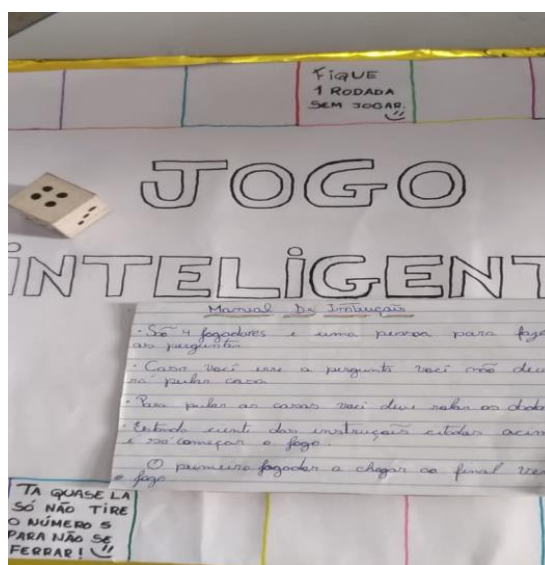 FIQUE
1 RODADA
SEM JOGAR.
JOGO
INTELIGENT
Manual De Instruçais
• São 4 jogadores e uma pessoa para faze
as pergunta
• Caso você erre a pergunta você não deve
rá pular casa
• Para pular as casas você deve rolar os dado
• Estando cient das instruçais citadas acim
é só começar o jogo.
O primeiro jogador a chegar ao final ven
o jogo
TA QUASE LA
SÓ NÃO TIRE
O NÚMERO 5
PARA NÃO SE
FERRAR!